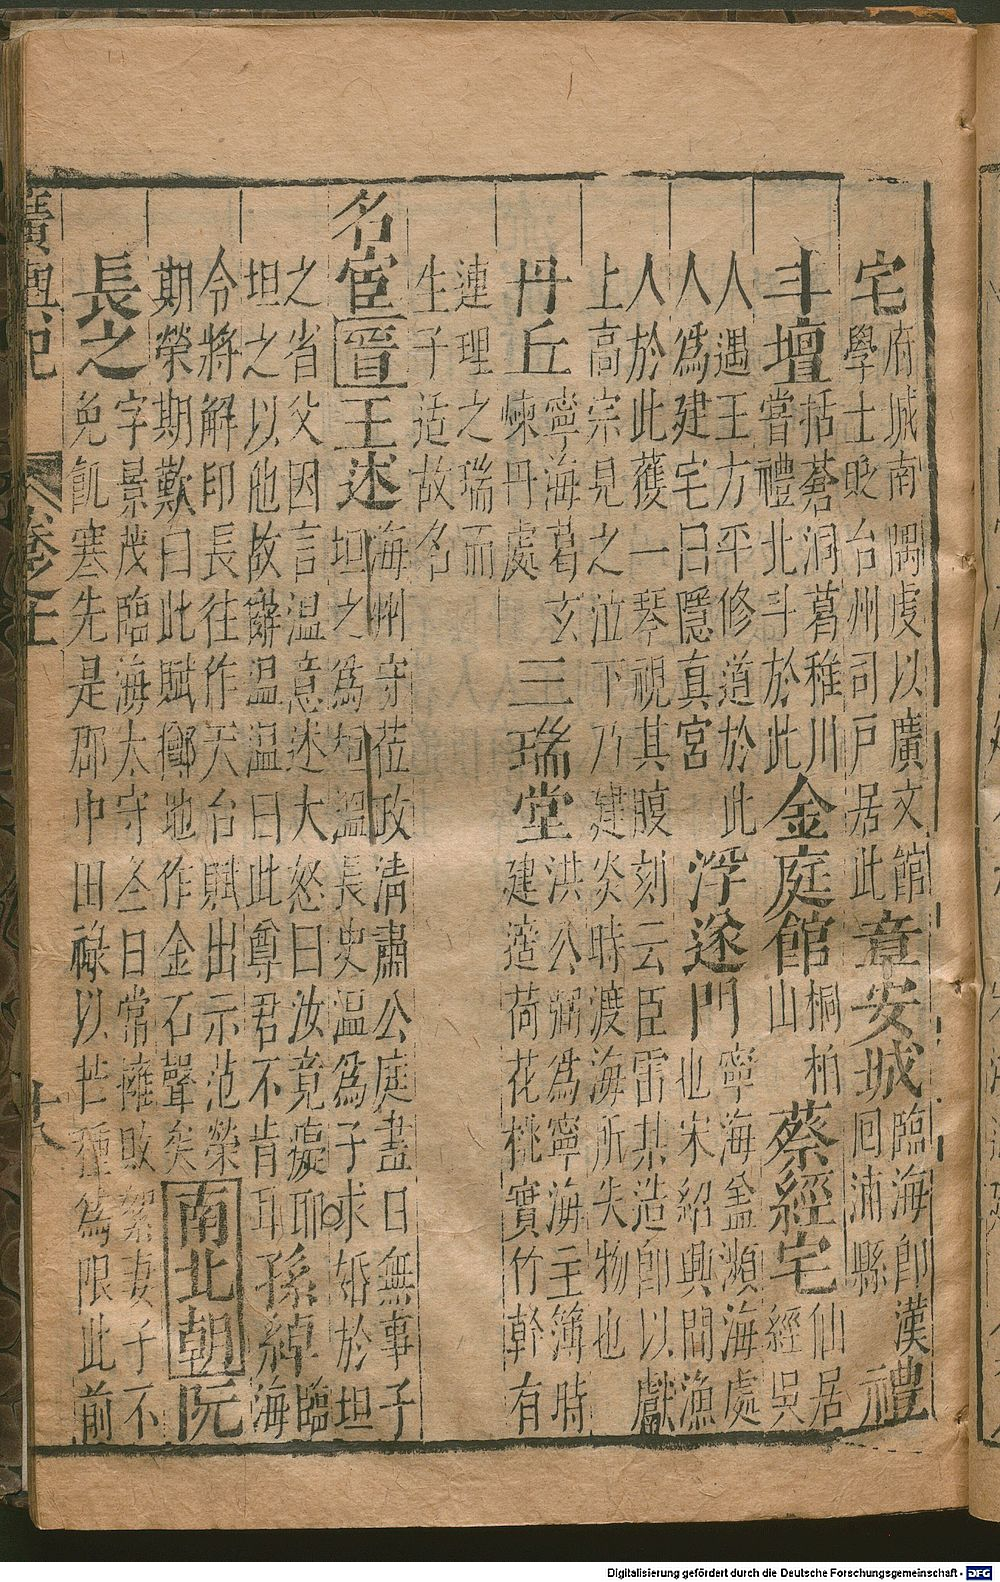 宅府城南隅虔以廣文館章安城臨海即漢
學士貶台州司戶居此回浦縣禮
斗壇括蒼洞葛稚川金庭館桐柏蔡經宅仙居
嘗禮北斗於此山經吳
人遇王方平修道於此浮逐門寧海盆瀕海處
人為建宅曰隱真宮也宋紹興間漁
人於此獲一琴視其腹刻云臣雷某造即以獻
上高宗見之泣下乃建炎時渡海所失物也
丹丘寧海葛玄三瑞堂洪公弼為寧海主簿時
煉丹處建適荷花桃實竹幹有
連理之瑞而
生子适故名
名宦晉王述海州守莅政清肅公庭晝日無事子
坦之為桓溫長史溫為子求婚於坦
之省父因言溫意述大怒曰汝竟癡耶孫綽臨
坦之以他故辭溫溫曰此尊君不肯耳海
令將解印長往作天台賦出示范榮
期榮期歎曰此賦擲地作金石聲矣南北朝阮
長之字景茂臨海太守仝日常擁敗絮妻子不
免飢寒先是郡中田祿以芒種為限此前
廣輿記 卷之十一 十八
Digitalisierung gefördert durch die Deutsche Forschungsgemeinschaft - DFG